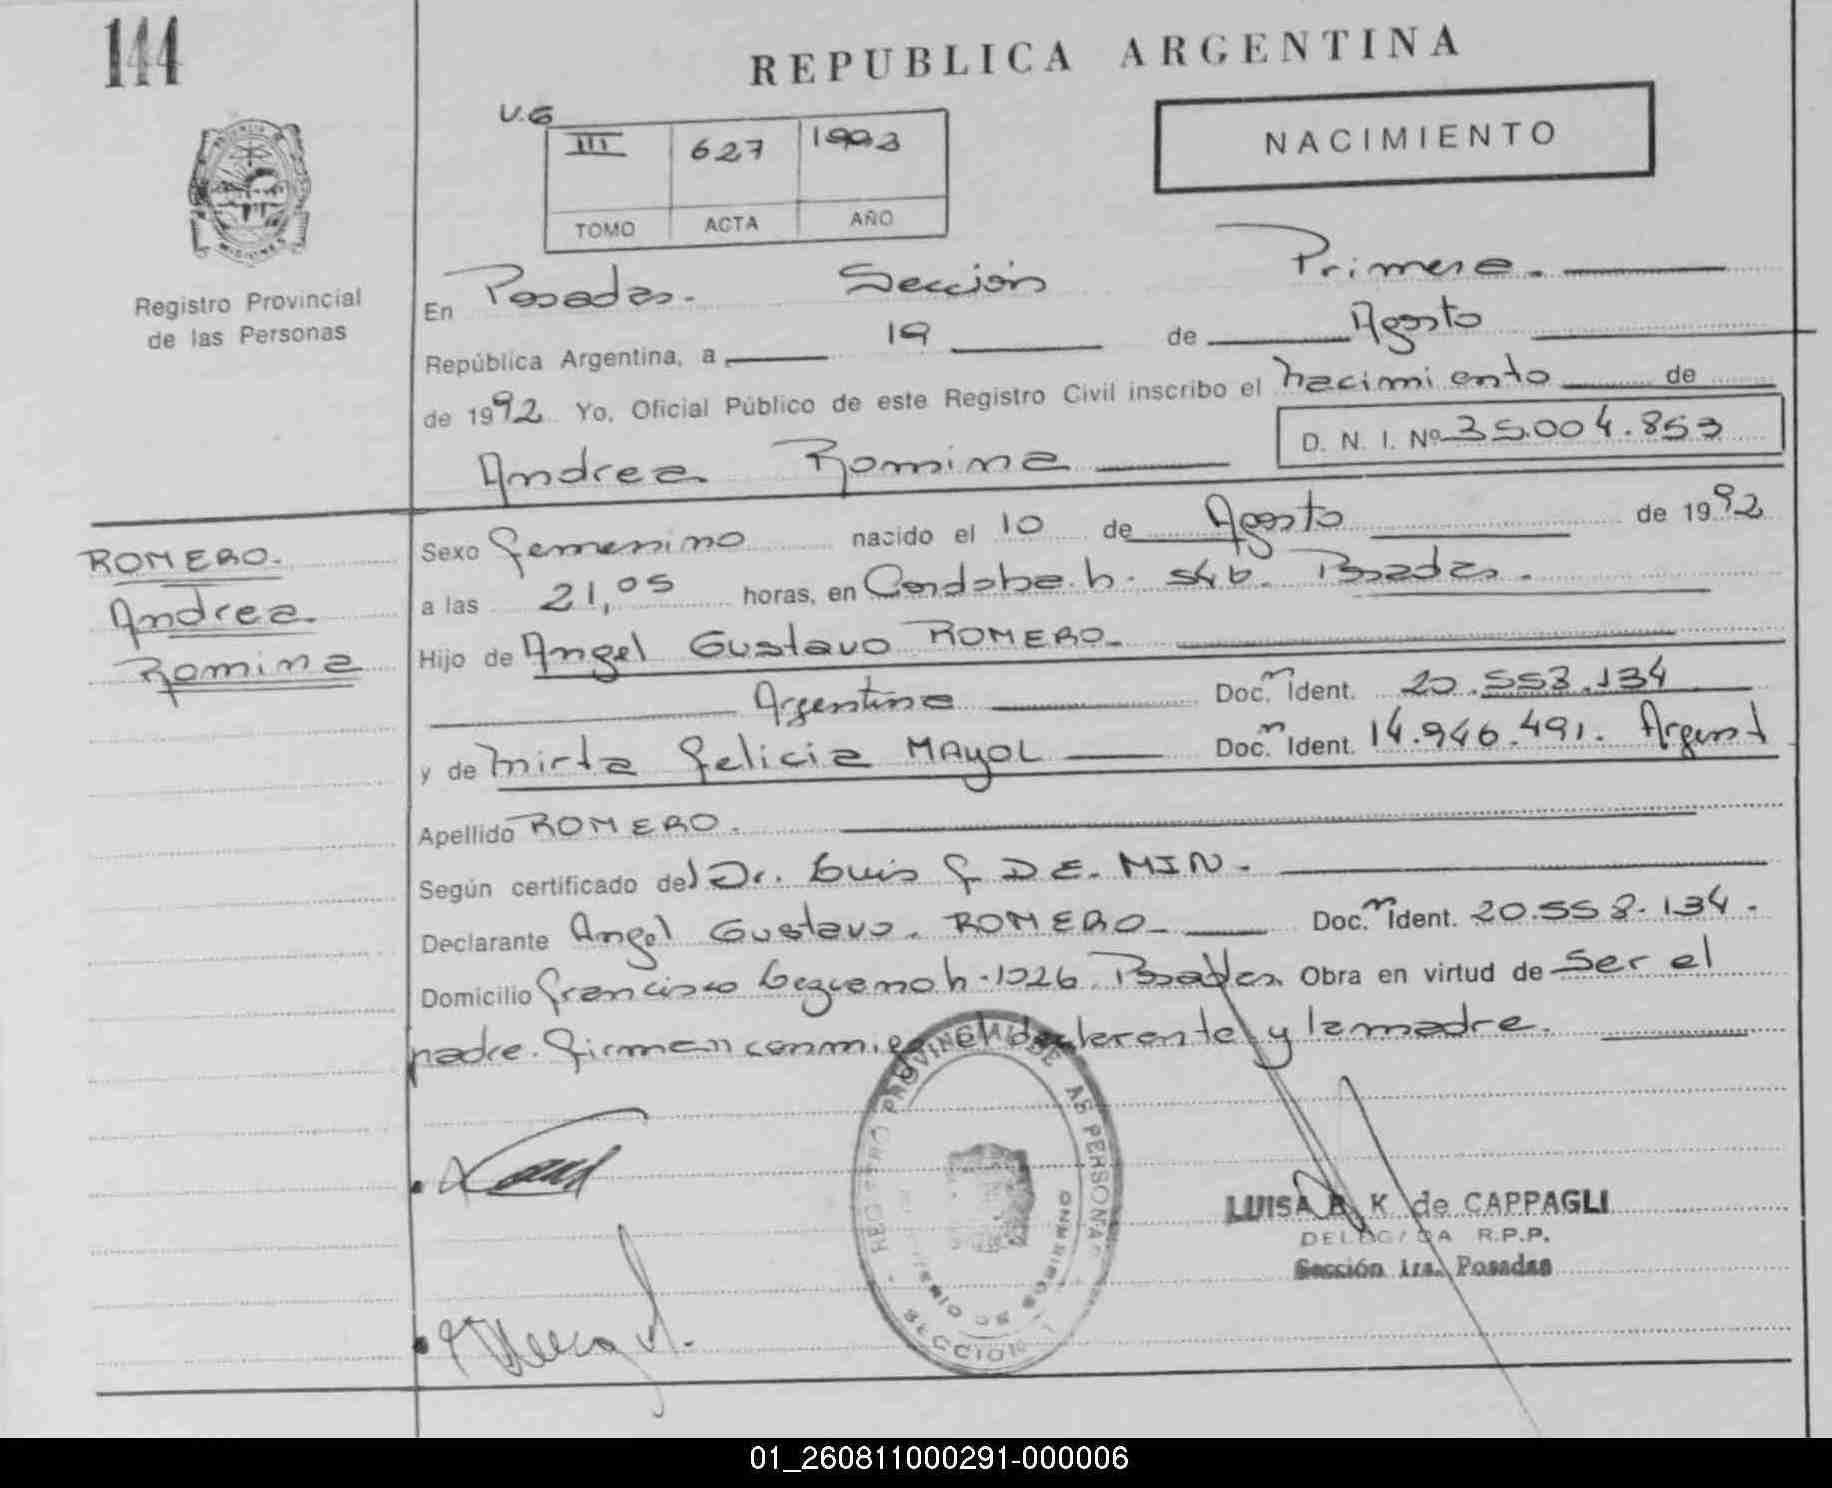 144
REPUBLICA ARGENTINA
V.G
III 627 1992
TOMO ACTA AÑO
NACIMIENTO
Registro Provincial
de las Personas
En Posadas. Sección Primera.
República Argentina, a 19 de Agosto
de 1992 Yo, Oficial Público de este Registro Civil inscribo el nacimiento de
D. N. I. Nº 35.004.853
Andrea Romina
ROMERO.
Andrea
Romina
Sexo femenino nacido el 10 de Agosto de 1992
a las 21,05 horas, en Cordoba h. Posadas.
Hijo de Angel Gustavo ROMERO.
Argentina Doc. n Ident. 20.553.134
y de Mirta felicia MAYOL Doc. n Ident. 14.946.491. Argent
Apellido ROMERO.
Según certificado del Dr. Luis f DE. MIN.
Declarante Angel Gustavo. ROMERO Doc. n Ident. 20.553.134.
Domicilio francisco h. 1026. Posadas Obra en virtud de ser el
padre. firman conmigo el declarante y la madre.
REGISTRO PROVINCIAL DE LAS PERSONAS
MINISTERIO DE GOBIERNO
SECCION 1
LUISA B. K de CAPPAGLI
DELEGADA R.P.P.
Sección 1ra. Posadas
01_260811000291-000006